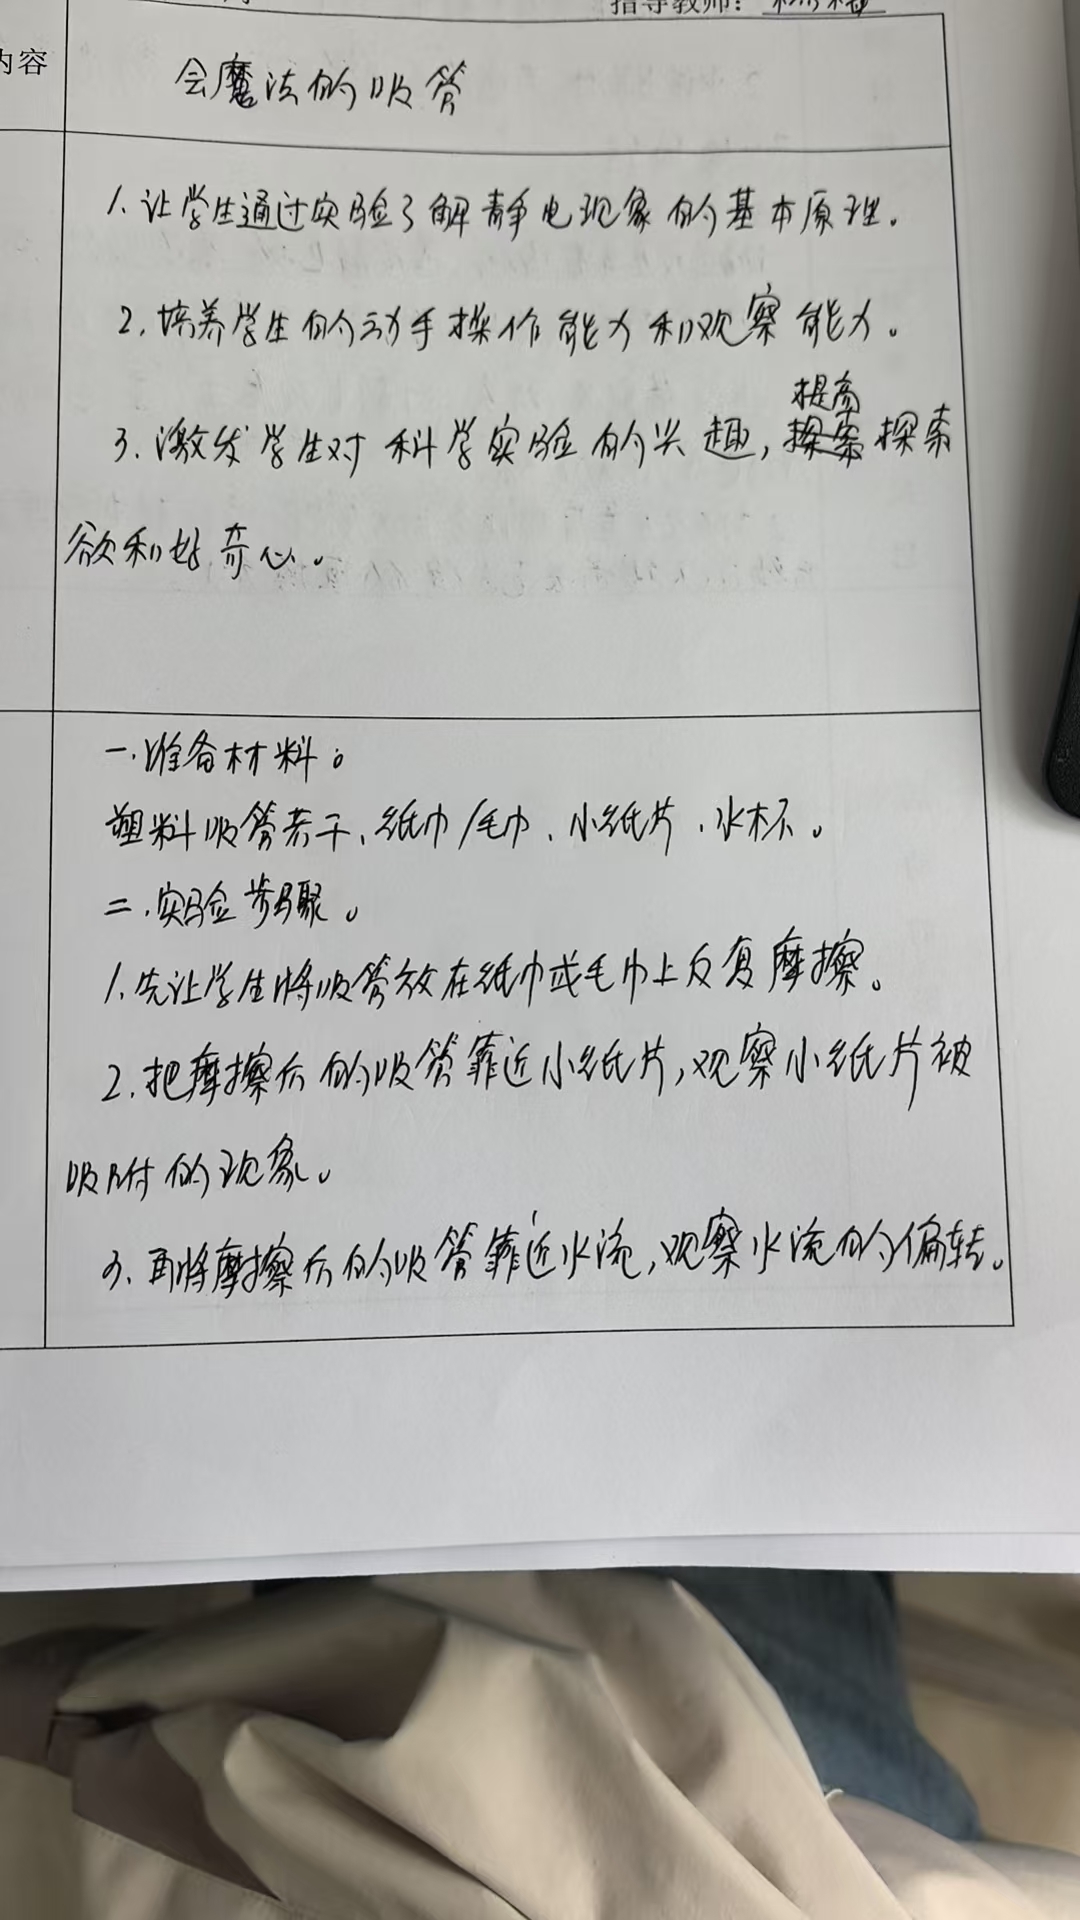 指导教师：
内容
会魔法的吸管
1. 让学生通过实验了解静电现象的基本原理。
2. 培养学生的动手操作能力和观察能力。
提高
3. 激发学生对科学实验的兴趣，探索探索
欲和好奇心。
一. 准备材料。
塑料吸管若干、纸巾/毛巾、小纸片、水杯。
二. 实验步骤。
1. 先让学生将吸管放在纸巾或毛巾上反复摩擦。
2. 把摩擦后的吸管靠近小纸片，观察小纸片被
吸附的现象。
3. 再将摩擦后的吸管靠近水流，观察水流的偏转。